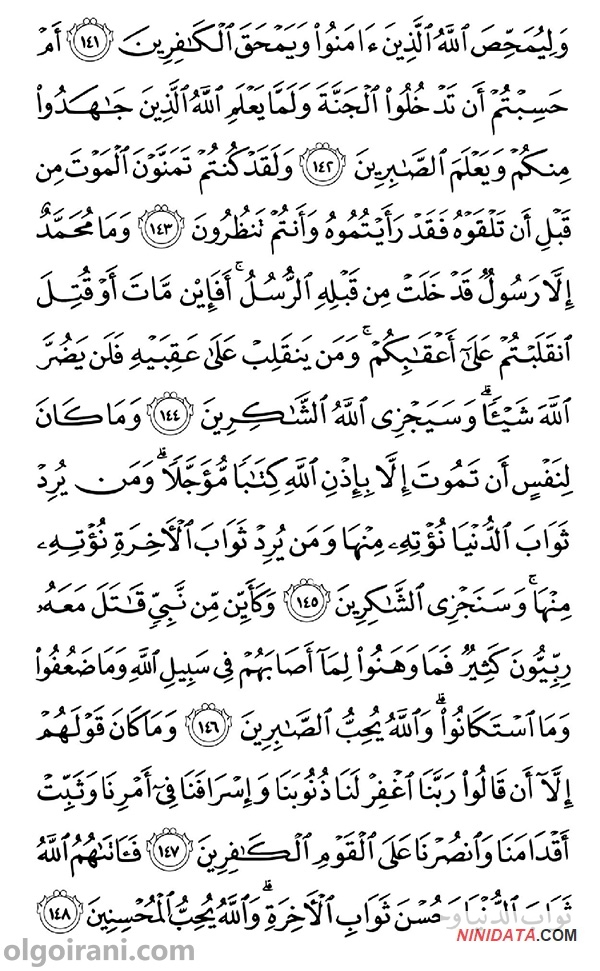 وَلِيُمَحِّصَ ٱللَّهُ ٱلَّذِينَ ءَامَنُوا۟ وَيَمْحَقَ ٱلْكَـٰفِرِينَ ١٤١ أَمْ
حَسِبْتُمْ أَن تَدْخُلُوا۟ ٱلْجَنَّةَ وَلَمَّا يَعْلَمِ ٱللَّهُ ٱلَّذِينَ جَـٰهَدُوا۟
مِنكُمْ وَيَعْلَمَ ٱلصَّـٰبِرِينَ ١٤٢ وَلَقَدْ كُنتُمْ تَمَنَّوْنَ ٱلْمَوْتَ مِن
قَبْلِ أَن تَلْقَوْهُ فَقَدْ رَأَيْتُمُوهُ وَأَنتُمْ تَنظُرُونَ ١٤٣ وَمَا مُحَمَّدٌ
إِلَّا رَسُولٌ قَدْ خَلَتْ مِن قَبْلِهِ ٱلرُّسُلُ ۚ أَفَإِي۟ن مَّاتَ أَوْ قُتِلَ
ٱنقَلَبْتُمْ عَلَىٰٓ أَعْقَـٰبِكُمْ ۚ وَمَن يَنقَلِبْ عَلَىٰ عَقِبَيْهِ فَلَن يَضُرَّ
ٱللَّهَ شَيْـًٔا ۗ وَسَيَجْزِى ٱللَّهُ ٱلشَّـٰكِرِينَ ١٤٤ وَمَا كَانَ
لِنَفْسٍ أَن تَمُوتَ إِلَّا بِإِذْنِ ٱللَّهِ كِتَـٰبًا مُّؤَجَّلًا ۗ وَمَن يُرِدْ
ثَوَابَ ٱلدُّنْيَا نُؤْتِهِۦ مِنْهَا وَمَن يُرِدْ ثَوَابَ ٱلْـَٔاخِرَةِ نُؤْتِهِۦ
مِنْهَا ۚ وَسَنَجْزِى ٱلشَّـٰكِرِينَ ١٤٥ وَكَأَيِّن مِّن نَّبِىٍّ قَـٰتَلَ مَعَهُۥ
رِبِّيُّونَ كَثِيرٌ فَمَا وَهَنُوا۟ لِمَآ أَصَابَهُمْ فِى سَبِيلِ ٱللَّهِ وَمَا ضَعُفُوا۟
وَمَا ٱسْتَكَانُوا۟ ۗ وَٱللَّهُ يُحِبُّ ٱلصَّـٰبِرِينَ ١٤٦ وَمَا كَانَ قَوْلَهُمْ
إِلَّآ أَن قَالُوا۟ رَبَّنَا ٱغْفِرْ لَنَا ذُنُوبَنَا وَإِسْرَافَنَا فِىٓ أَمْرِنَا وَثَبِّتْ
أَقْدَامَنَا وَٱنصُرْنَا عَلَى ٱلْقَوْمِ ٱلْكَـٰفِرِينَ ١٤٧ فَـَٔاتَىٰهُمُ ٱللَّهُ
ثَوَابَ ٱلدُّنْيَا وَحُسْنَ ثَوَابِ ٱلْـَٔاخِرَةِ ۗ وَٱللَّهُ يُحِبُّ ٱلْمُحْسِنِينَ ١٤٨
NINIDATA.COM
olgoirani.com